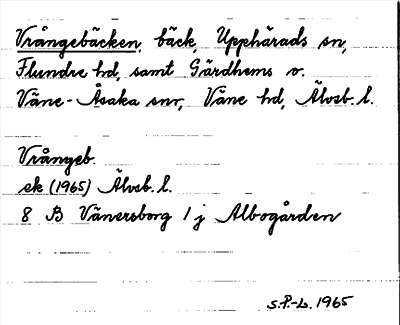 Vrångebäcken, bäck, Upphärads sn,
Flundre hd, samt Gärdhems o.
Väne-Åsaka snr, Väne hd, Älvsb. l.
Vrångeb.
ek (1965) Älvsb. l.
8 B Vänersborg 1 j Albogården
S.P.-L. 1965